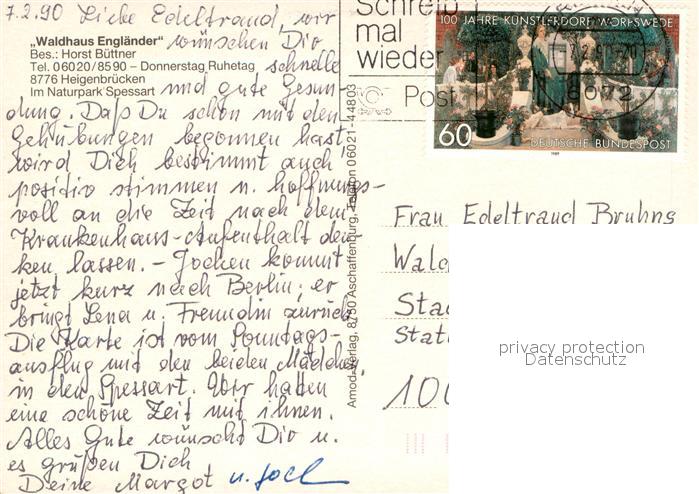 7.2.90 Liebe Edeltraud, wir
„Waldhaus Engländer“ wünschen Dir
Bes.: Horst Büttner
Tel. 06020/8590 – Donnerstag Ruhetag schnelle
8776 Heigenbrücken
Im Naturpark Spessart und gute Gesun
dung. Daß Du schon mit den
Gehübungen begonnen hast
wird Dich bestimmt auch
positiv stimmen u. hoffnungs-
voll an die Zeit nach dem
Krankenhaus-Aufenthalt den
ken lassen. – Jochen kommt
jetzt kurz nach Berlin; er
bringt Lena u. Freundin zurück
Die Karte ist vom Sonntags-
ausflug mit den beiden Mädchen,
in den Spessart. Wir hatten
eine schöne Zeit mit ihnen.
Alles Gute wünscht Dir u.
es grüßen Dich
Deine Margot u. Joch
Amod-Verlag, 8750 Aschaffenburg, Telefon 06021-44803
Schreib
mal
wieder
Post
100 JAHRE KÜNSTLERDORF WORPSWEDE
6072
60 DEUTSCHE BUNDESPOST
1989
Frau Edeltraud Bruhns
Wald
Sta
Stat
100
privacy protection
Datenschutz